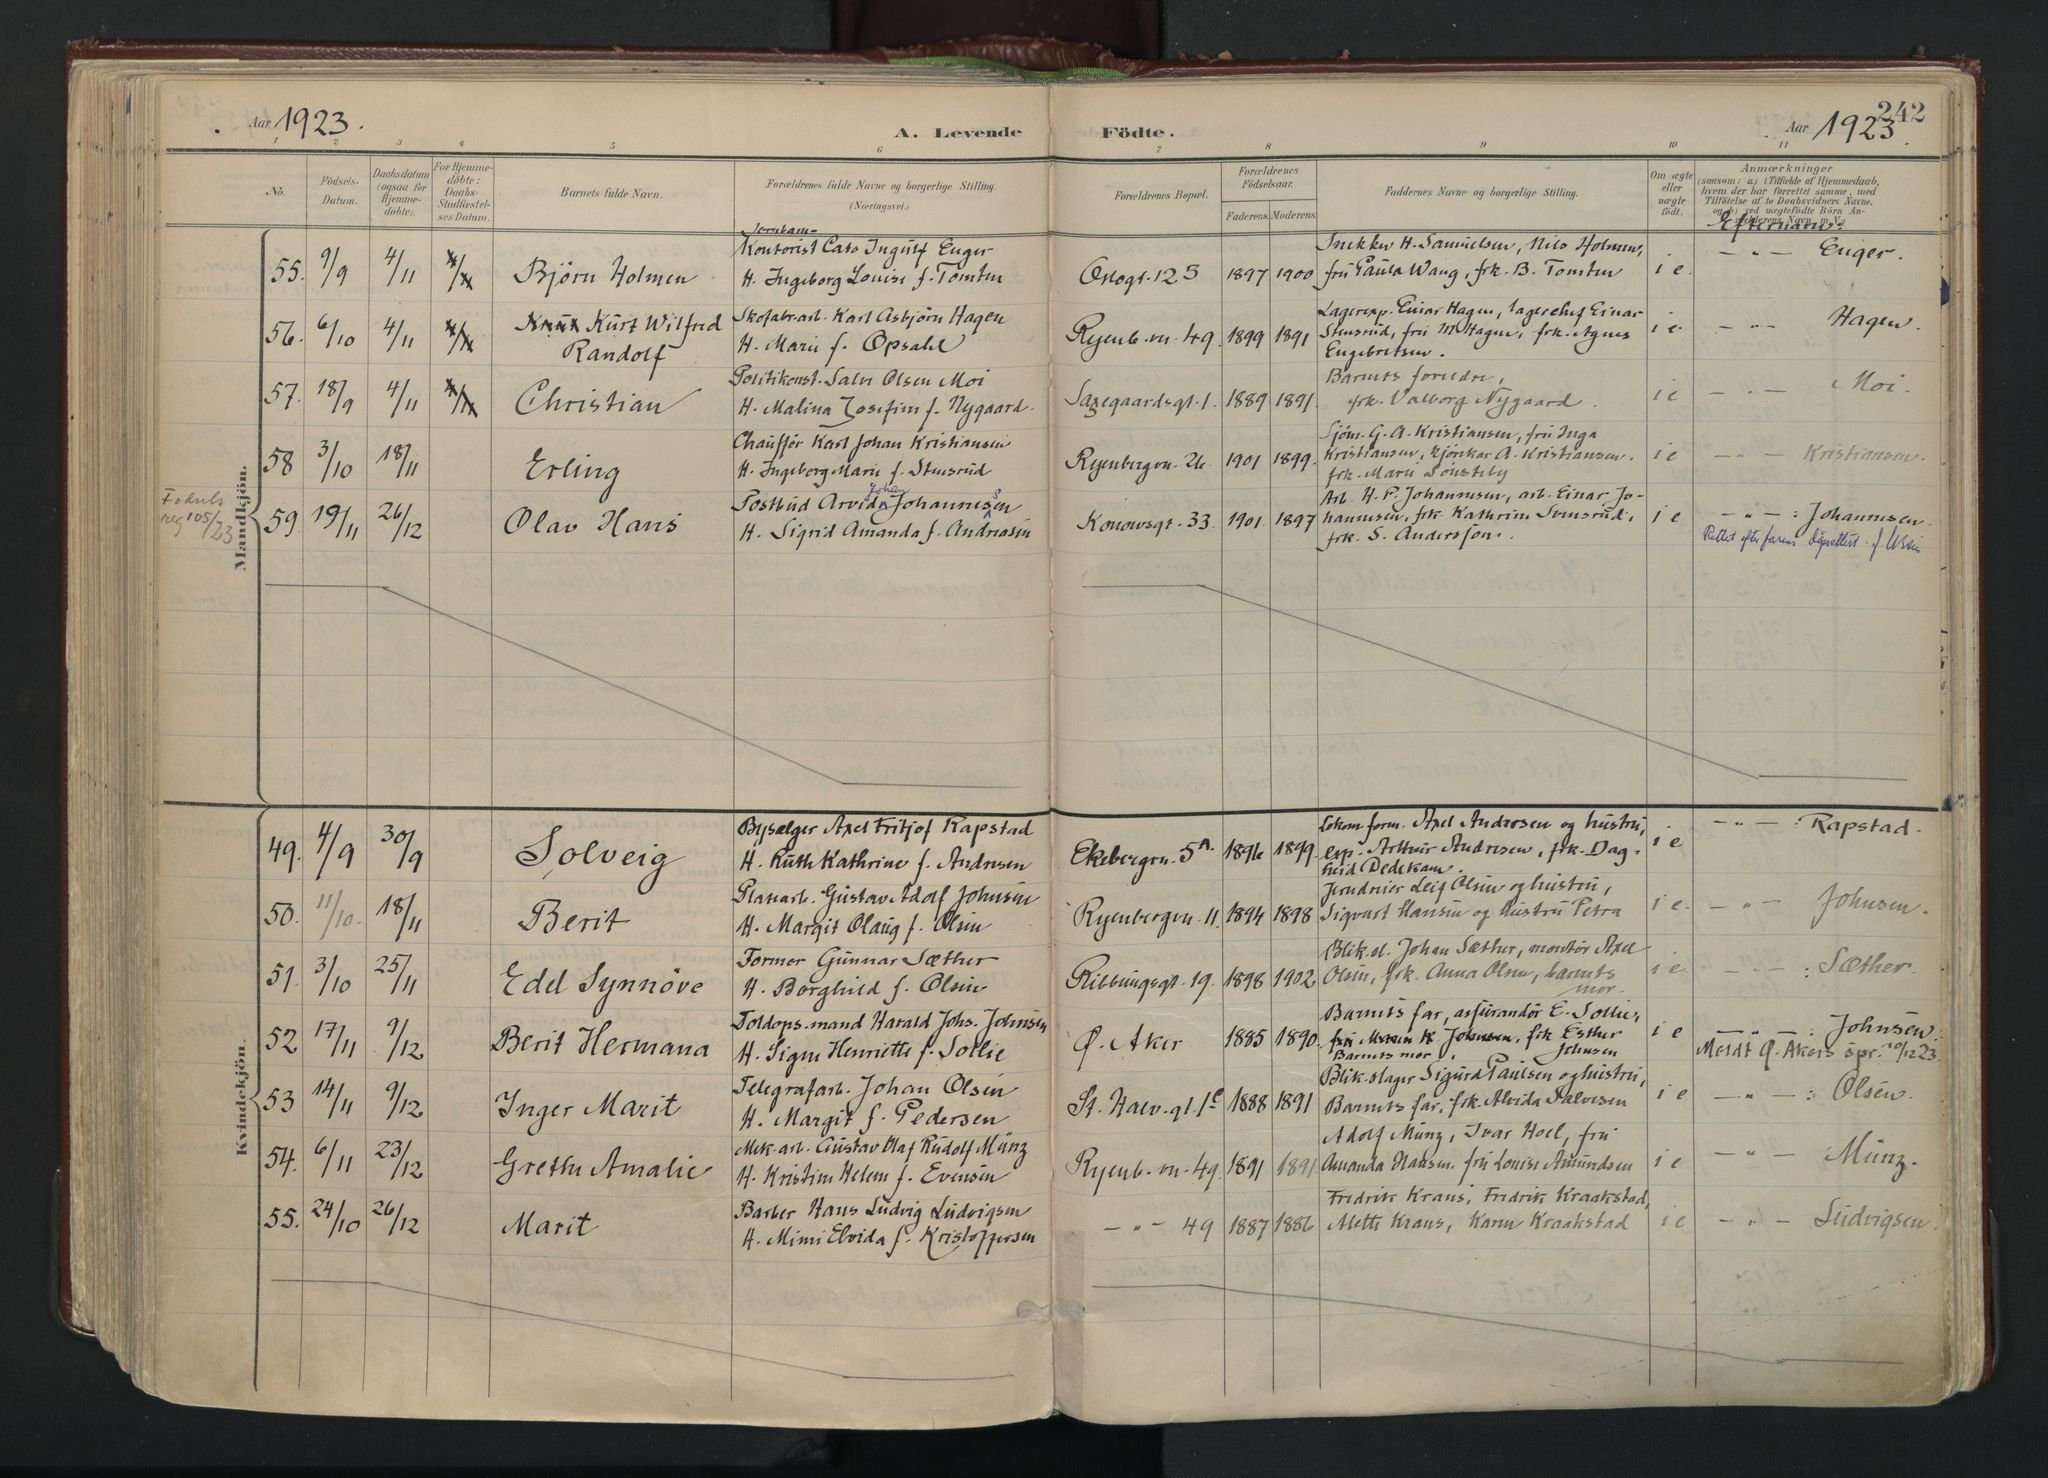 Aar 1923. A. Levende Födte. Aar 1923. 242
1 2 3 4 5 6 7 8 9 10 11
No. Födsels-Datum. Daabsdatum (ogsaa for Hjemmedöbte). For Hjemmedöbte: Daabs-Stadfæstelses Datum. Barnets fulde Navn. Forældrenes fulde Navne og borgerlige Stilling. (Næringsvei.) Forældrenes Bopæl. Forældrenes Födselsaar. Faderens. Moderens. Faddernes Navne og borgerlige Stilling. Om ægte eller uægte födt. Anmærkninger
(saasom: a) i Tilfælde af Hjemmedaab, hvem der har forrettet samme, med Tilföielse af to Daabsvidners Navne, og b) ved uægtefödte Börn Anmelderens Navn m. V.)
Efternavn:
Mandkjön.
55. 9/9 4/11 Björn Holmen
Kontorist Cato Ingulf Enger
H. Ingeborg Louise f. Tomten
Oslogt. 123 1897 1900
Snekker H. Samuelsen, Nils Holmen,
fru Paula Wang, frk. B. Tomten
i e. — " — Enger.
56. 6/10 4/11 Kurt Wilfred
Randolf
Skofabr.arb. Karl Asbjörn Hagen
H. Marie f. Opsahl
Ryenb.vn. 49. 1899 1891
Lagerexp. Einar Hagen, lagerchef Einar
Stensrud, fru M. Hagen, frk. Agnes
Engebretsen.
i e. — " — Hagen.
57. 18/9 4/11 Christian
Politikonst. Salve Olsen Moi
H. Malina Josefine f. Nygaard.
Saxegaardsgt. 1. 1889 1891.
Barnets foreldre,
frk. Valborg Nygaard.
i e — " — Moi.
58 3/10 18/11 Erling
Chaufför Karl Johan Kristiansen
H. Ingeborg Marie f. Stensrud
Ryenbergvn. 26. 1901 1899.
Sjöm. G. A. Kristiansen, fru Inga
Kristiansen, A. Kristiansen.
frk. Marie Sönsteby
i e — " — Kristiansen.
Fødsels
reg 105/23
59. 19/11 26/12 Olav Hans
Johan
Postbud Arvid Johannessen
H. Sigrid Amanda f. Andreasen
Konowsgt. 33. 1901. 1897
Arb. H. P. Johannesen, arb. Einar Jo-
hannesen, frk Kathrine Svensrud,
frk. S. Andersson.
i e — " — : Johannesen.
Rettet efter farens dåpsattest.
Kvindekjön.
49. 4/9 30/9 Solveig
Bysælger Axel Fritjof Rapstad
H. Ruth Kathrine f. Andresen
Ekebergvn. 5A. 1896 1899.
Lokom.form. Axel Andresen og hustru,
exp. Arthur Andresen, frk. Dag-
heid Dedekam.
i e — " — : Rapstad.
50. 11/10. 18/11 Berit
Platearb. Gustav Adolf Johnsen
H. Margit Olaug f. Olsen
Ryenbergvn. 11. 1894 1898
Jerndreier Leif Olsen og hustru,
Sigvart Hansen og hustru Petra
i e. — " — Johnsen.
51. 3/10 25/11 Edel Synnöve
Former Gunnar Sæther
H. Borghild f. Olsen
Ribbungsgt. 19. 1898 1902
Blik.sl. Johan Sæther, montör Axel
Olsen, frk. Anna Olsen, barnets
mor.
i e — " — : Sæther.
52 17/11 9/12 Berit Hermana
Toldops.mand Harald Johs. Johnsen
H. Signe Henriette f. Sollie
Ö. Aker 1885 1890.
Barnets far, assurandör E. Sollie,
fru Johnsen, frk Esther
Barnets mor. Johnsen
i e — " — : Johnsen.
Meldt Ö. Akers spr. 10/12 23.
53 14/11 9/12 Inger Marit
Telegrafarb. Johan Olsen
H. Margit f. Pedersen
St. Halv. gt. 1c 1888 1891
Blik.slager Sigurd Paulsen og hustru,
Barnets far, frk. Alvida Salvesen
i e — " — : Olsen.
54. 6/11 23/12 Grethe Amalie
Mek.arb. Gustav Olaf Rudolf Münz
H. Kristine Helene f. Evensen
Ryenb.vn. 49. 1891 1891
Adolf Münz, Ivar Hoel, fru
Amanda Hansen, fru Louise Amundsen
i e — " — Münz.
55. 24/10 26/12 Marit
Barber Hans Ludvig Ludvigsen
H. Mimi Elvida f. Kristoffersen
— " — 49 1887 1886
Fredrik Kraus, Fredrik Kraakstad,
Mette Kraus, Karen Kraakstad
i e — " — Ludvigsen.